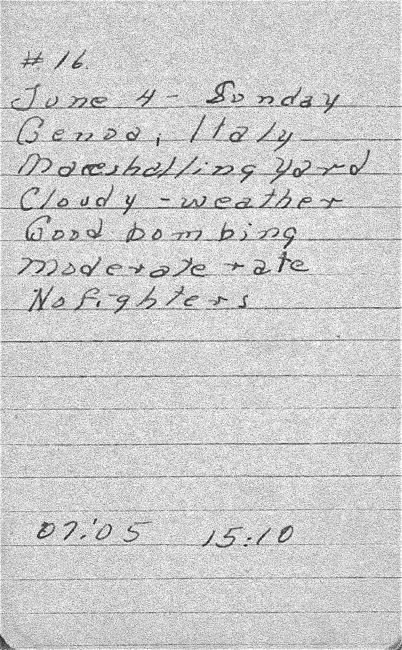 # 16.
June 4 - Sunday
Genoa, Italy
Mareshalling Yard
Cloudy - weather
Good bombing
Moderate rate
No fighters
07:05 15:10